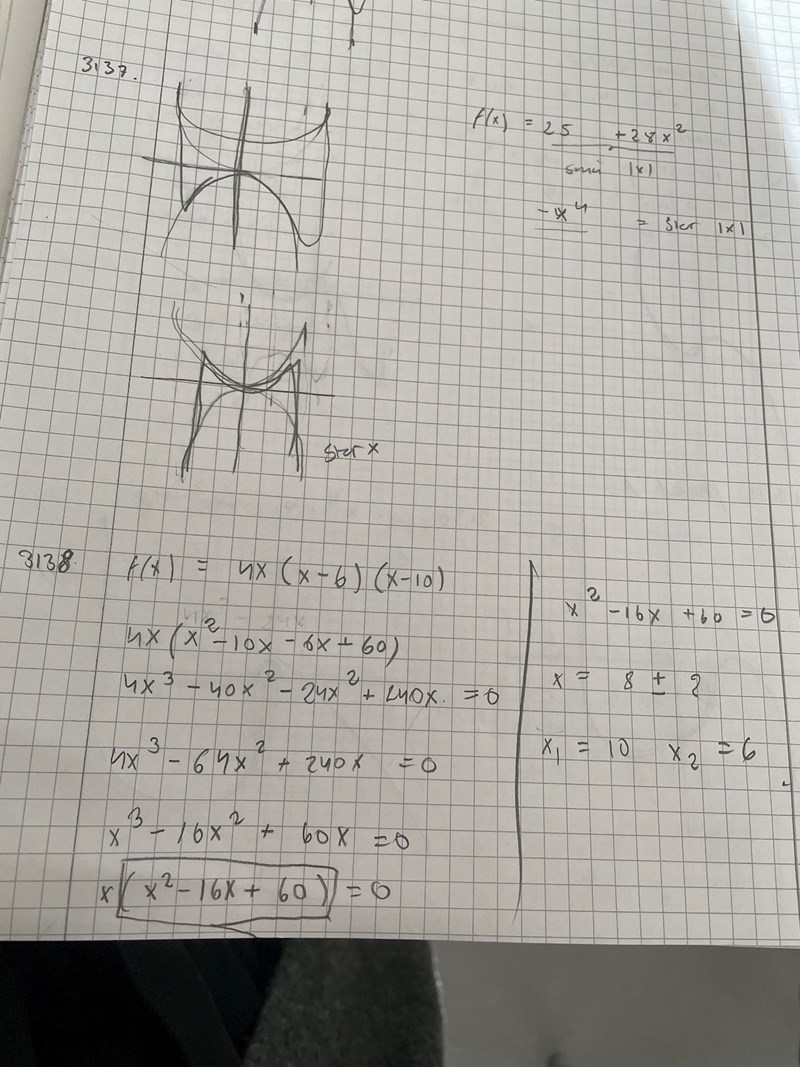 3137.
f(x) = 25 + 28x²
små |x|
-x⁴ = stor |x|
stor x
3138. f(x) = 4x (x-6) (x-10)
4x (x² - 10x - 6x + 60)
4x³ - 40x² - 24x² + 240x = 0
4x³ - 64x² + 240x = 0
x³ - 16x² + 60x = 0
x (x² - 16x + 60) = 0
x² - 16x + 60 = 0
x = 8 ± 2
x₁ = 10 x₂ = 6